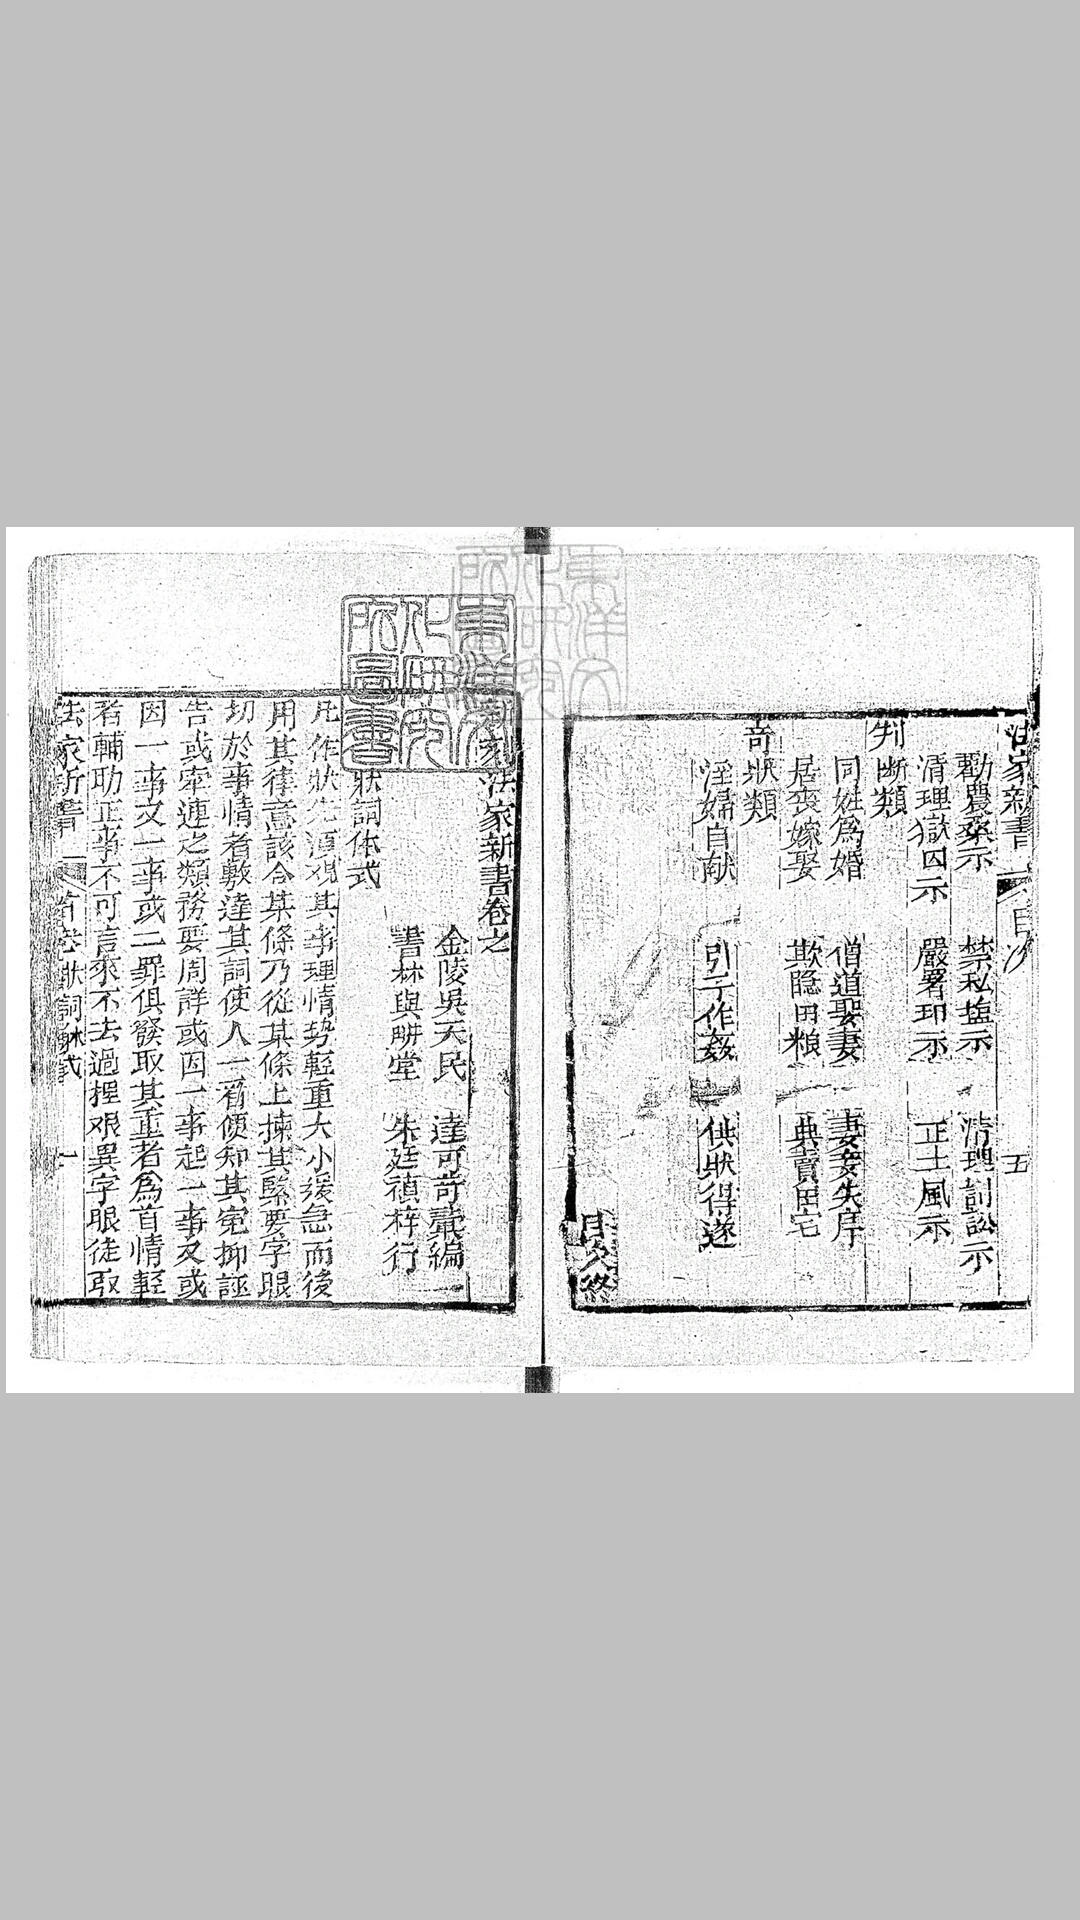 法家新書 目次 五
勸農桑示 禁私塩示 清理訟示
清理獄囚示 嚴署印示 正士風示
判断類
同姓為婚 僧道娶妻 妻妾失序
居喪嫁娶 欺隐田粮 典賣田宅
奇状類
淫婦自献 引子作姦 供状得遂
目次終
新刻法家新書卷之
金陵吳天民 達可奇彙編
書林與畊堂 朱廷禎梓行
状詞体式
凡作状先須視其事理情势輕重大小援急而後
用其律意該合某條乃從某條上揀其緊要字眼
切於事情者敷達其詞使人一看便知其寃抑誣
告或牽連之類務要周詳或因一事起一事又或
因一事又一事或二罪俱發取其重者為首情輕
者輔助正事不可言來不去過捏艰異字眼徒取
法家新書 首卷状詞体式 一
東洋文化研究所圖書